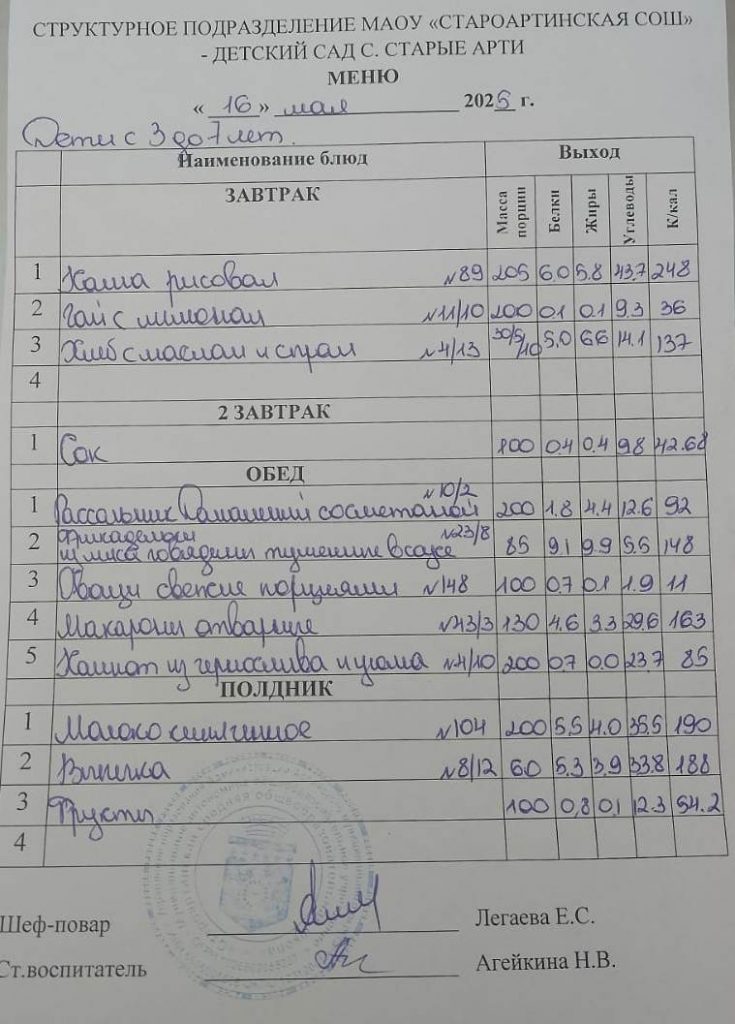 СТРУКТУРНОЕ ПОДРАЗДЕЛЕНИЕ МАОУ «СТАРОАРТИНСКАЯ СОШ»
- ДЕТСКИЙ САД С. СТАРЫЕ АРТИ
МЕНЮ
« 16 » мая 2025 г.
Дети с 3 до 7 лет.
Наименование блюд Выход
ЗАВТРАК Масса порции Белки Жиры Углеводы К/кал
1 Каша рисовая №89 205 6.0 5.8 43.7 248
2 Чай с лимоном №11/10 200 0.1 0.1 9.3 36
3 Хлеб с маслом и сыром №4/13 30/5/10 5.0 6.6 14.1 137
4
2 ЗАВТРАК
1 Сок 100 0.4 0.4 9.8 42.68
ОБЕД
1 Рассольник Домашний со сметаной №10/2 200 1.8 4.4 12.6 92
2 Фрикадельки из мяса говядины тушеные в соусе №23/8 85 9.1 9.9 5.5 148
3 Овощи свежие порциями №148 100 0.7 0.1 1.9 11
4 Макароны отварные №43/3 130 4.6 3.3 29.6 163
5 Компот из чернослива и изюма №4/10 200 0.7 0.0 23.7 85
ПОЛДНИК
1 Молоко кипяченое №104 200 5.5 4.0 35.5 190
2 Выпечка №8/12 60 5.3 3.9 33.8 188
3 Фрукты 100 0,8 0,1 12.3 54.2
4
Шеф-повар Легаева Е.С.
Ст.воспитатель Агейкина Н.В.